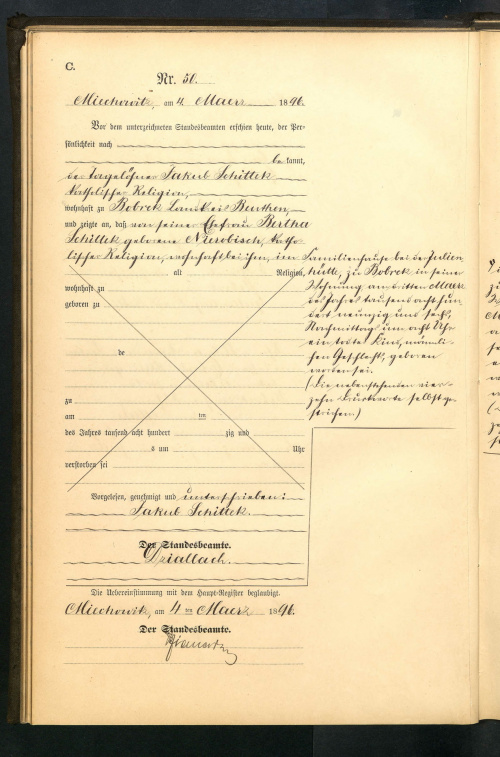 C.
Nr. 50.
Miechowitz, am 4 Maerz 1896.
Vor dem unterzeichneten Standesbeamten erschien heute, der Per-
sönlichkeit nach
be kannt,
der Tagelöhner Jakub Schittek
katholischer Religion,
wohnhaft zu Bobrek Landkreis Beuthen,
und zeigte an, daß von seiner Ehefrau Bertha
Schittek geborene Nierobisch, katho-
lischer Religion, wohnhaft bei ihm, im
Familienhause bei der Julien
hütte, zu Bobrek in seiner
Wohnung am dritten Maerz
des Jahres tausend acht hun
dert neunzig und sechs,
Nachmittags um acht Uhr
ein todtes Kind, männli-
chen Geschlechts, geboren
worden sei.
(Die nebenstehenden vier-
zehn Druckworte selbst ge-
strichen)
alt Religion,
wohnhaft zu
geboren zu
de
zu
am ten
des Jahres tausend acht hundert zig und
s um Uhr
verstorben sei
Vorgelesen, genehmigt und unterschrieben:
Jakub Schittek.
Der Standesbeamte.
Die Uebereinstimmung mit dem Haupt-Register beglaubigt.
Miechowitz, am 4 ten Maerz 1896.
Der Standesbeamte.